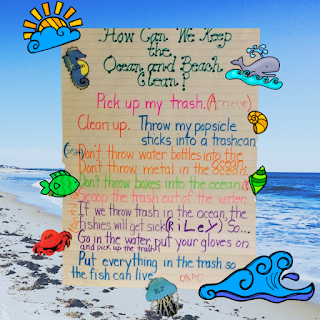 How Can We Keep
the
Ocean and Beach
Clean?
Pick up my trash.
Clean up. Throw my popsicle
sticks into a trashcan
Don't throw water bottles into the
Don't throw metal in the ocean.
Don't throw boxes into the ocean.
Scoop the trash out of the water.
If we throw trash in the ocean, the
fishies will get sick (RiLeY) So...
Go in the water, put your gloves on
and pick up the trash!
Put everything in the trash so
the fish can live